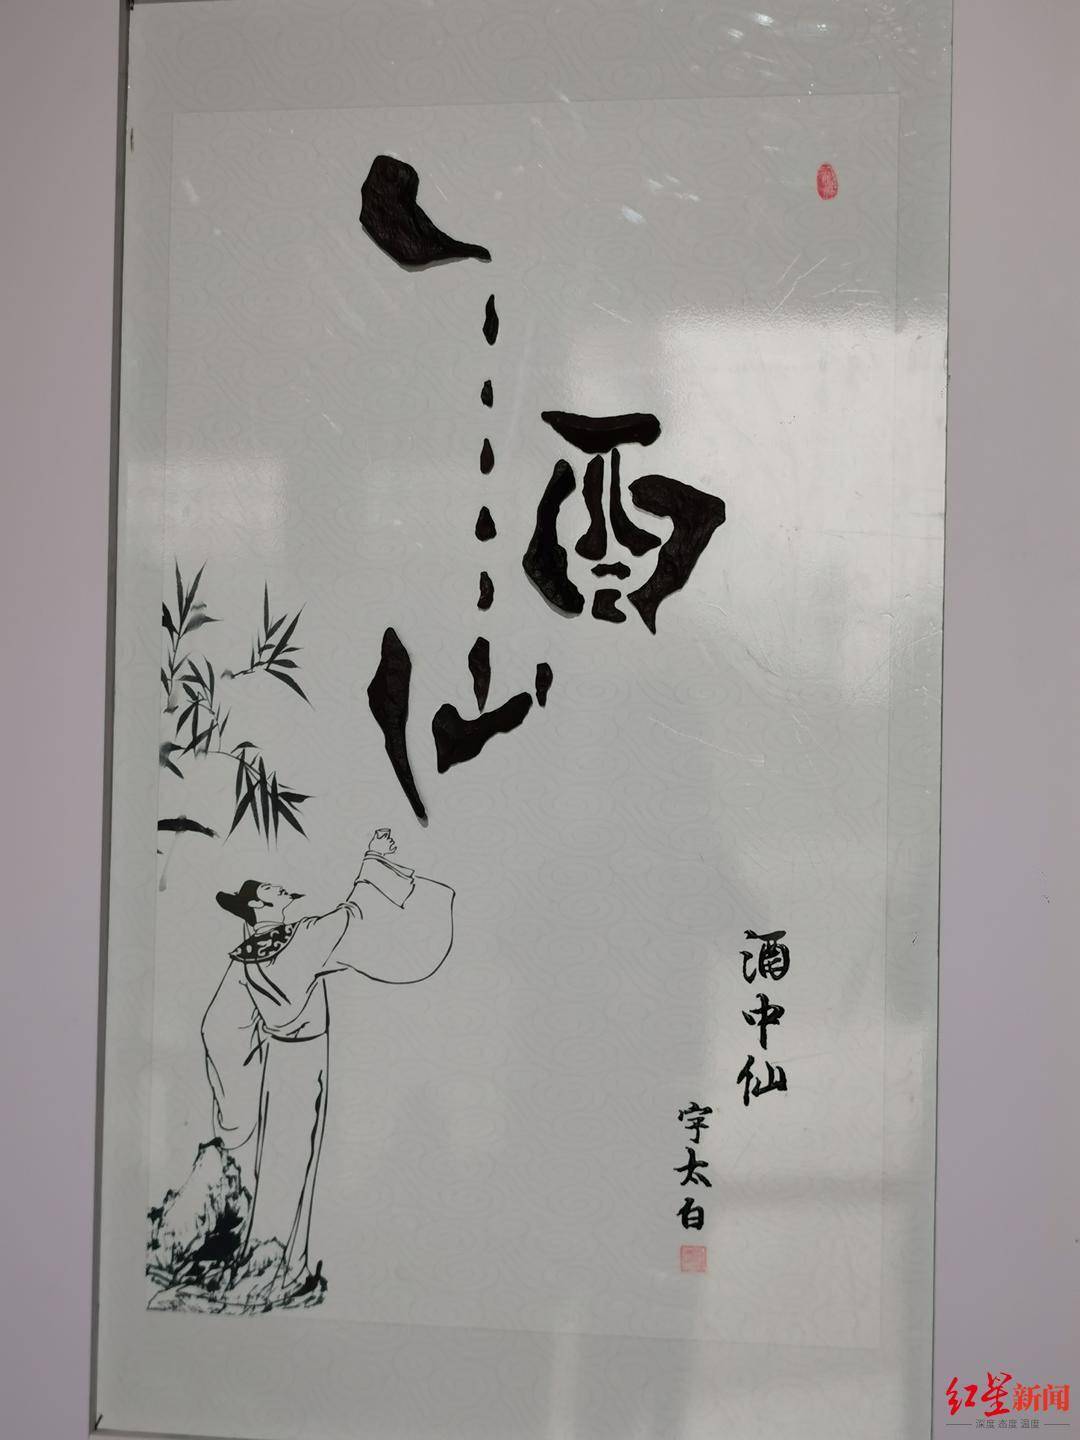 酒仙
酒中仙
宇太白
红星新闻
深度 态度 温度